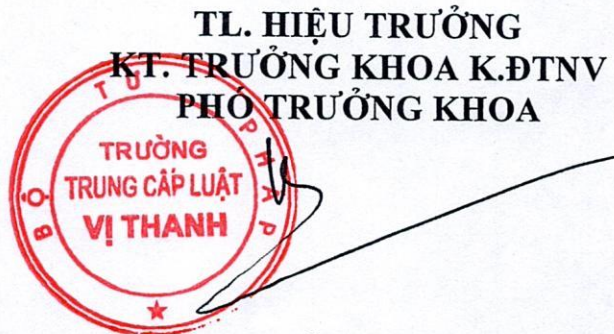 TL. HIỆU TRƯỞNG
KT. TRƯỞNG KHOA K.ĐTNV
PHÓ TRƯỞNG KHOA
BỘ TƯ PHÁP
TRƯỜNG
TRUNG CẤP LUẬT
VỊ THANH